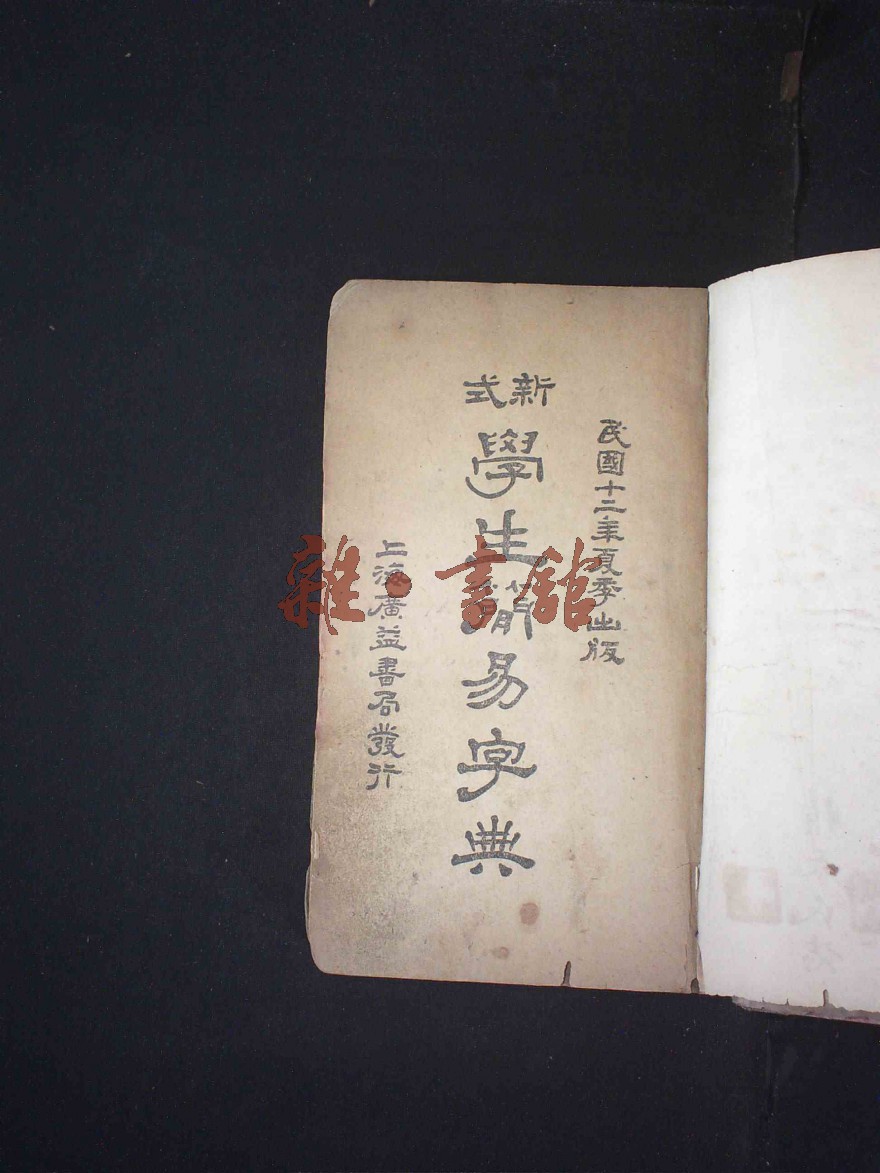 民國十二年夏季出版
新式
學生簡易字典
上海廣益書局發行
雜·書館